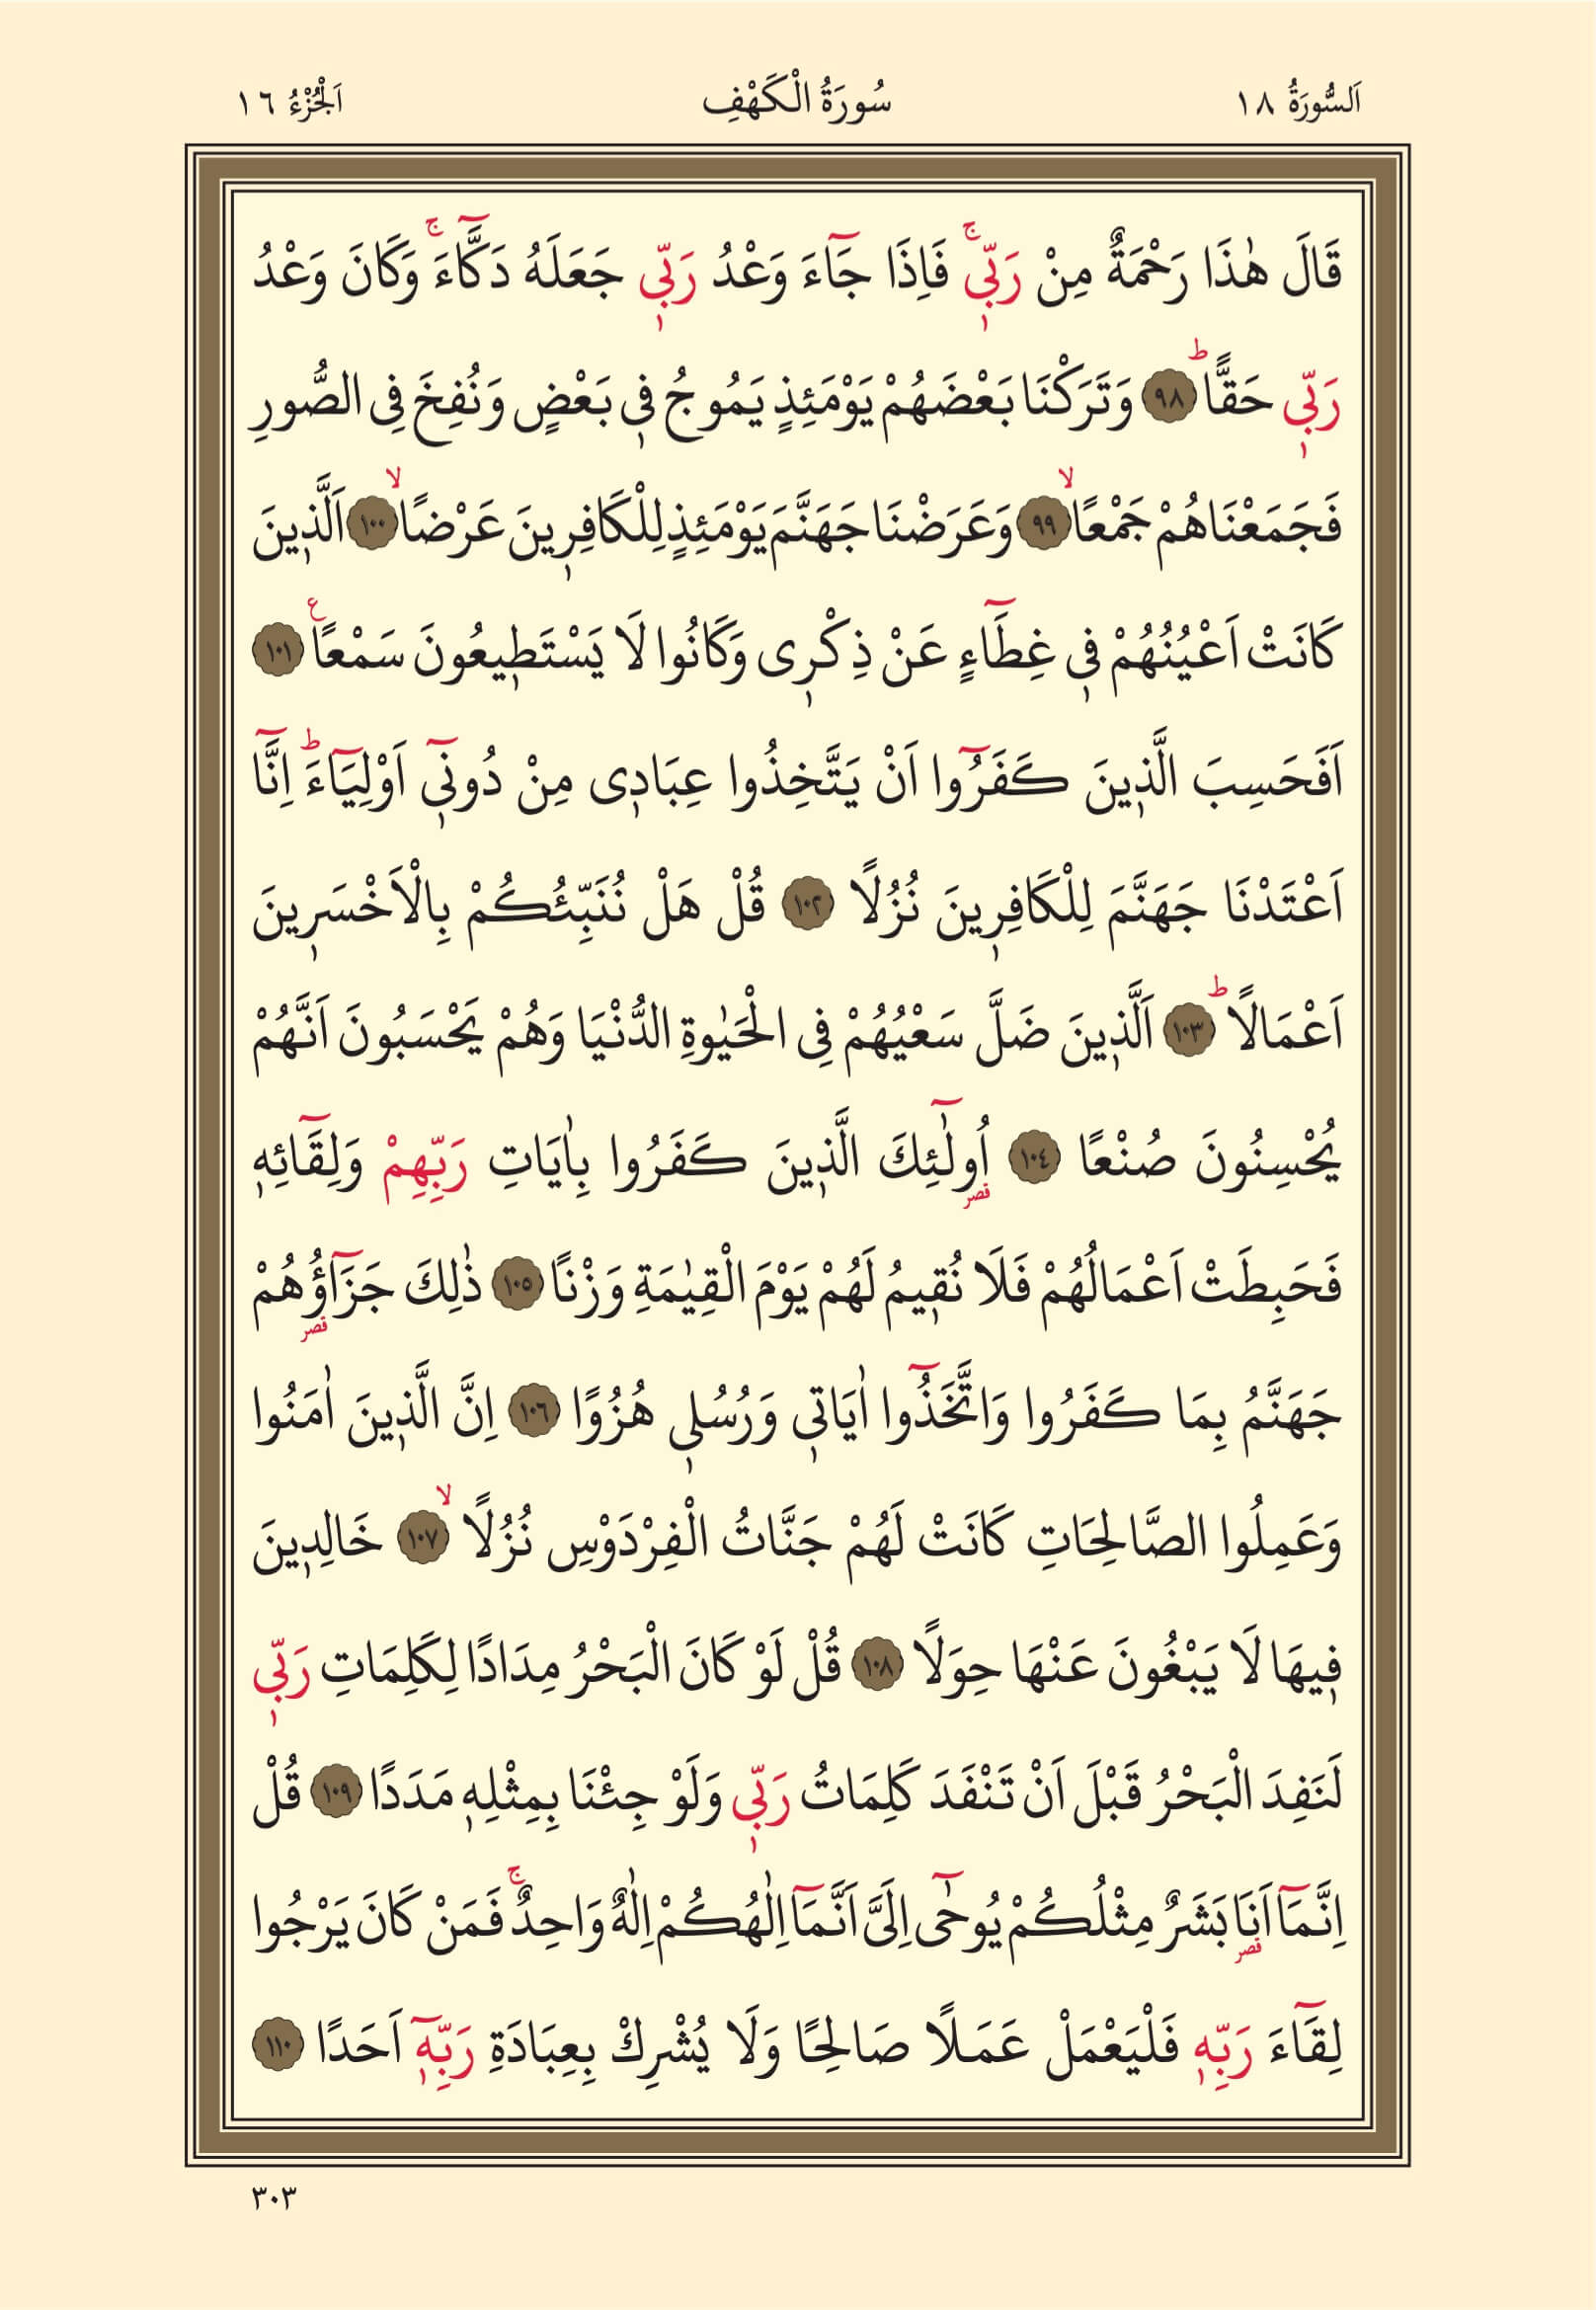 اَلسُّورَةُ ١٨
سُورَةُ الْكَهْفِ
اَلْجُزْءُ ١٦
قَالَ هٰذَا رَحْمَةٌ مِنْ رَبّ۪يۚ فَاِذَا جَٓاءَ وَعْدُ رَبّ۪ي جَعَلَهُ دَكَّٓاءَۚ وَكَانَ وَعْدُ
رَبّ۪ي حَقًّاؕ ٩٨ وَتَرَكْنَا بَعْضَهُمْ يَوْمَئِذٍ يَمُوجُ ف۪ي بَعْضٍ وَنُفِخَ فِي الصُّورِ
فَجَمَعْنَاهُمْ جَمْعًاۙ ٩٩ وَعَرَضْنَا جَهَنَّمَ يَوْمَئِذٍ لِلْكَافِر۪ينَ عَرْضًاۙ ١٠٠ اَلَّذ۪ينَ
كَانَتْ اَعْيُنُهُمْ ف۪ي غِطَٓاءٍ عَنْ ذِكْر۪ي وَكَانُوا لَا يَسْتَط۪يعُونَ سَمْعًاع ١٠١
اَفَحَسِبَ الَّذ۪ينَ كَفَرُٓوا اَنْ يَتَّخِذُوا عِبَاد۪ي مِنْ دُون۪ٓي اَوْلِيَٓاءَؕ اِنَّٓا
اَعْتَدْنَا جَهَنَّمَ لِلْكَافِر۪ينَ نُزُلًا ١٠٢ قُلْ هَلْ نُنَبِّئُكُمْ بِالْاَخْسَر۪ينَ
اَعْمَالًاؕ ١٠٣ اَلَّذ۪ينَ ضَلَّ سَعْيُهُمْ فِي الْحَيٰوةِ الدُّنْيَا وَهُمْ يَحْسَبُونَ اَنَّهُمْ
يُحْسِنُونَ صُنْعًا ١٠٤ اُو۬لٰٓئِكَ الَّذ۪ينَ كَفَرُوا بِاٰيَاتِ رَبِّهِمْ وَلِقَٓائِه۪
قصر
فَحَبِطَتْ اَعْمَالُهُمْ فَلَا نُق۪يمُ لَهُمْ يَوْمَ الْقِيٰمَةِ وَزْنًا ١٠٥ ذٰلِكَ جَزَٓاؤُ۬هُمْ
قصر
جَهَنَّمُ بِمَا كَفَرُوا وَاتَّخَذُٓوا اٰيَات۪ي وَرُسُل۪ي هُزُوًا ١٠٦ اِنَّ الَّذ۪ينَ اٰمَنُوا
وَعَمِلُوا الصَّالِحَاتِ كَانَتْ لَهُمْ جَنَّاتُ الْفِرْدَوْسِ نُزُلًاۙ ١٠٧ خَالِد۪ينَ
ف۪يهَا لَا يَبْغُونَ عَنْهَا حِوَلًا ١٠٨ قُلْ لَوْ كَانَ الْبَحْرُ مِدَادًا لِكَلِمَاتِ رَبّ۪ي
لَنَفِدَ الْبَحْرُ قَبْلَ اَنْ تَنْفَدَ كَلِمَاتُ رَبّ۪ي وَلَوْ جِئْنَا بِمِثْلِه۪ مَدَدًا ١٠٩ قُلْ
اِنَّمَٓا اَنَا۬ بَشَرٌ مِثْلُكُمْ يُوحٰٓى اِلَيَّ اَنَّمَٓا اِلٰهُكُمْ اِلٰهٌ وَاحِدٌۚ فَمَنْ كَانَ يَرْجُوا
قصر
لِقَٓاءَ رَبِّه۪ فَلْيَعْمَلْ عَمَلًا صَالِحًا وَلَا يُشْرِكْ بِعِبَادَةِ رَبِّه۪ٓ اَحَدًا ١١٠
٣٠٣